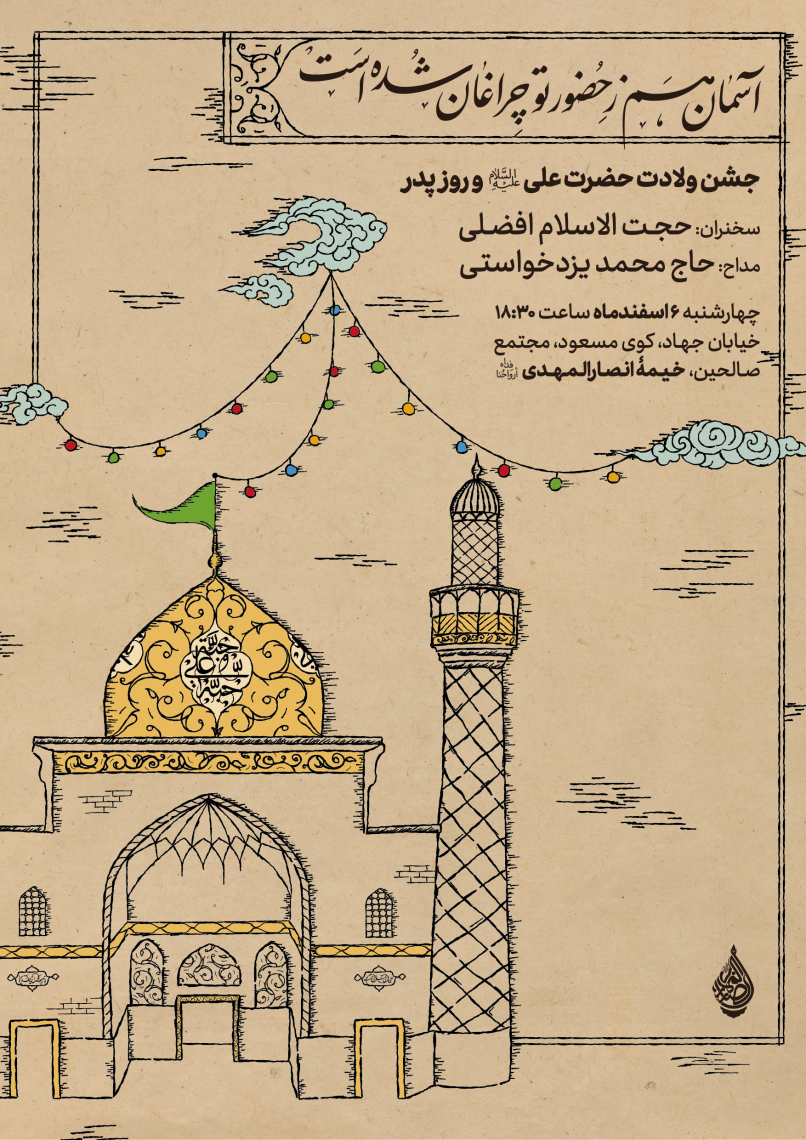 آسمان هم ز حضور تو چراغان شده است
جشن ولادت حضرت علی علیه‌السلام و روز پدر
سخنران: حجت الاسلام افضلی
مداح: حاج محمد یزدخواستی
چهارشنبه ۶ اسفندماه ساعت ۱۸:۳۰
خیابان جهاد، کوی مسعود، مجتمع
صالحین، خیمهٔ انصارالمهدی ارواحنا فداه